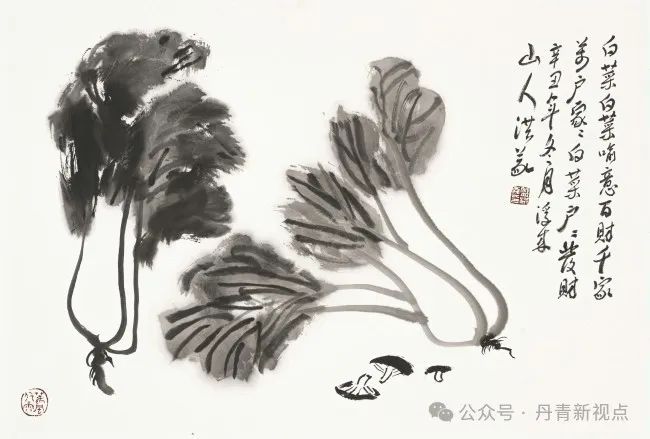 白菜白菜喻意百财千家
万户家〻白菜户〻发财
辛丑年冬月浮来
山人洪
公众号·丹青新视点